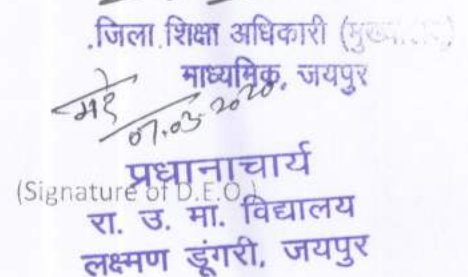 .जिला शिक्षा अधिकारी (मुख्यालय)
माध्यमिक, जयपुर
07.03.2020
प्रधानाचार्य
(Signature of D.E.O.)
रा. उ. मा. विद्यालय
लक्ष्मण डूंगरी, जयपुर